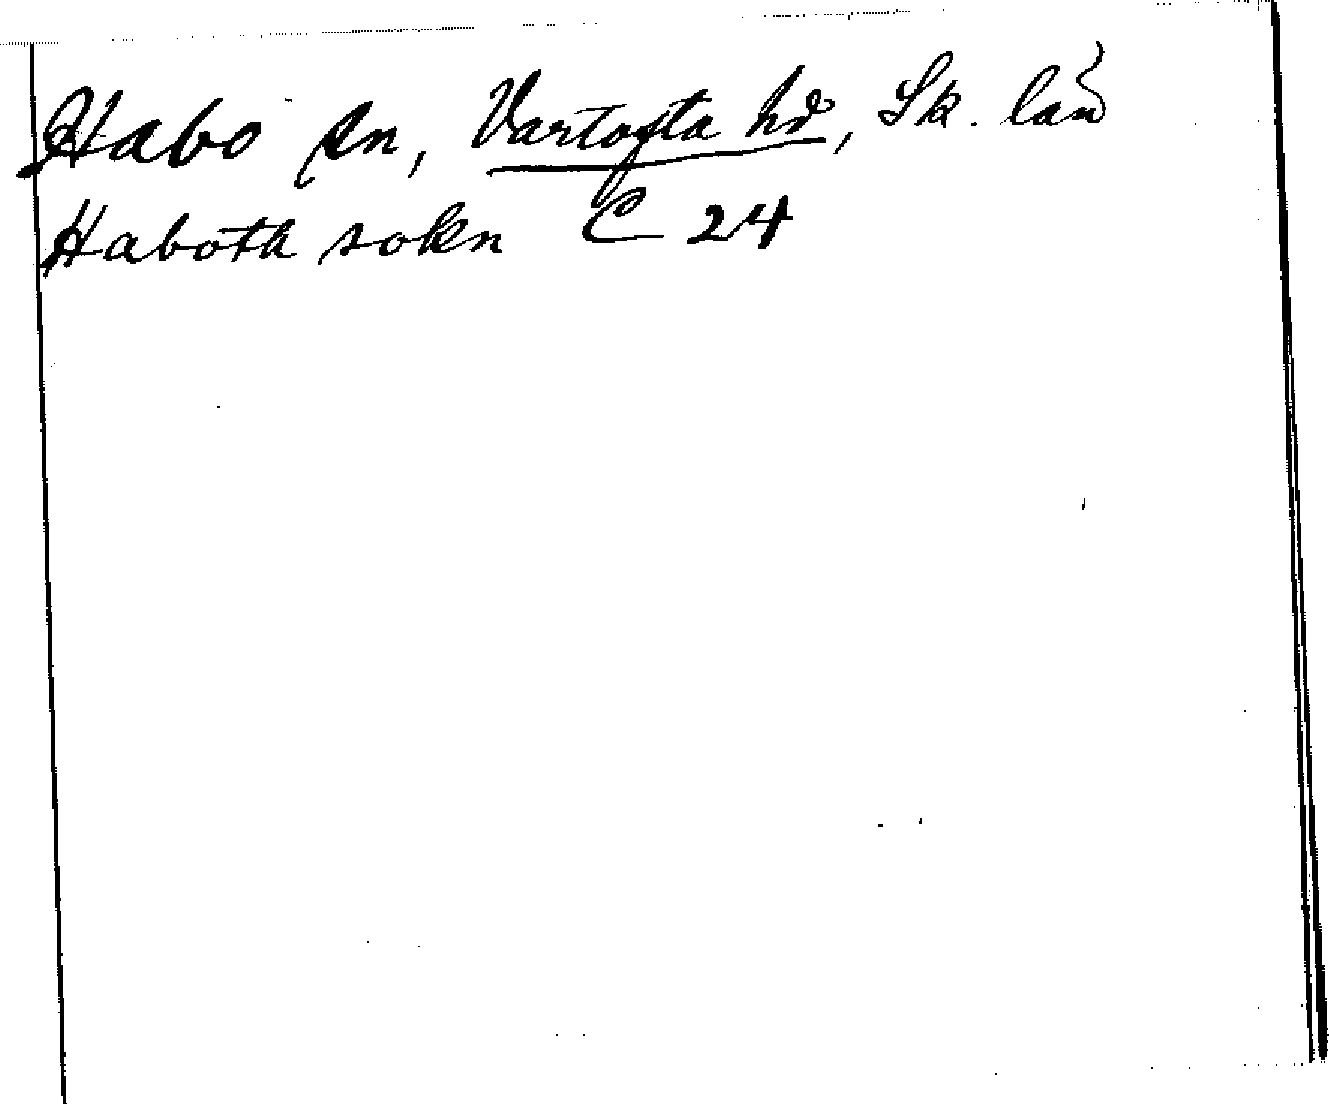 Habo sn, Vartofta hd, Sk. län
Haboth sokn C 24